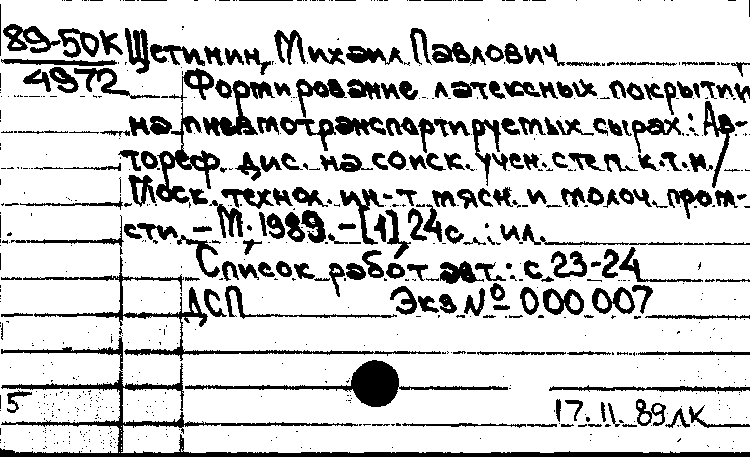 89-50К Щетинин, Михаил Павлович
4972 Формирование латексных покрытий
на пневмотранспортируемых сырах: Ав-
тореф. дис. на соиск. учен. степ. к.т.н.
Моск. технол. ин-т мясн. и молоч. пром-
сти. – М. 1989. – [1] 24с.: ил.
Список работ авт.: с. 23-24
ДСП Экз № 000007
5
17.11.89 ЛК